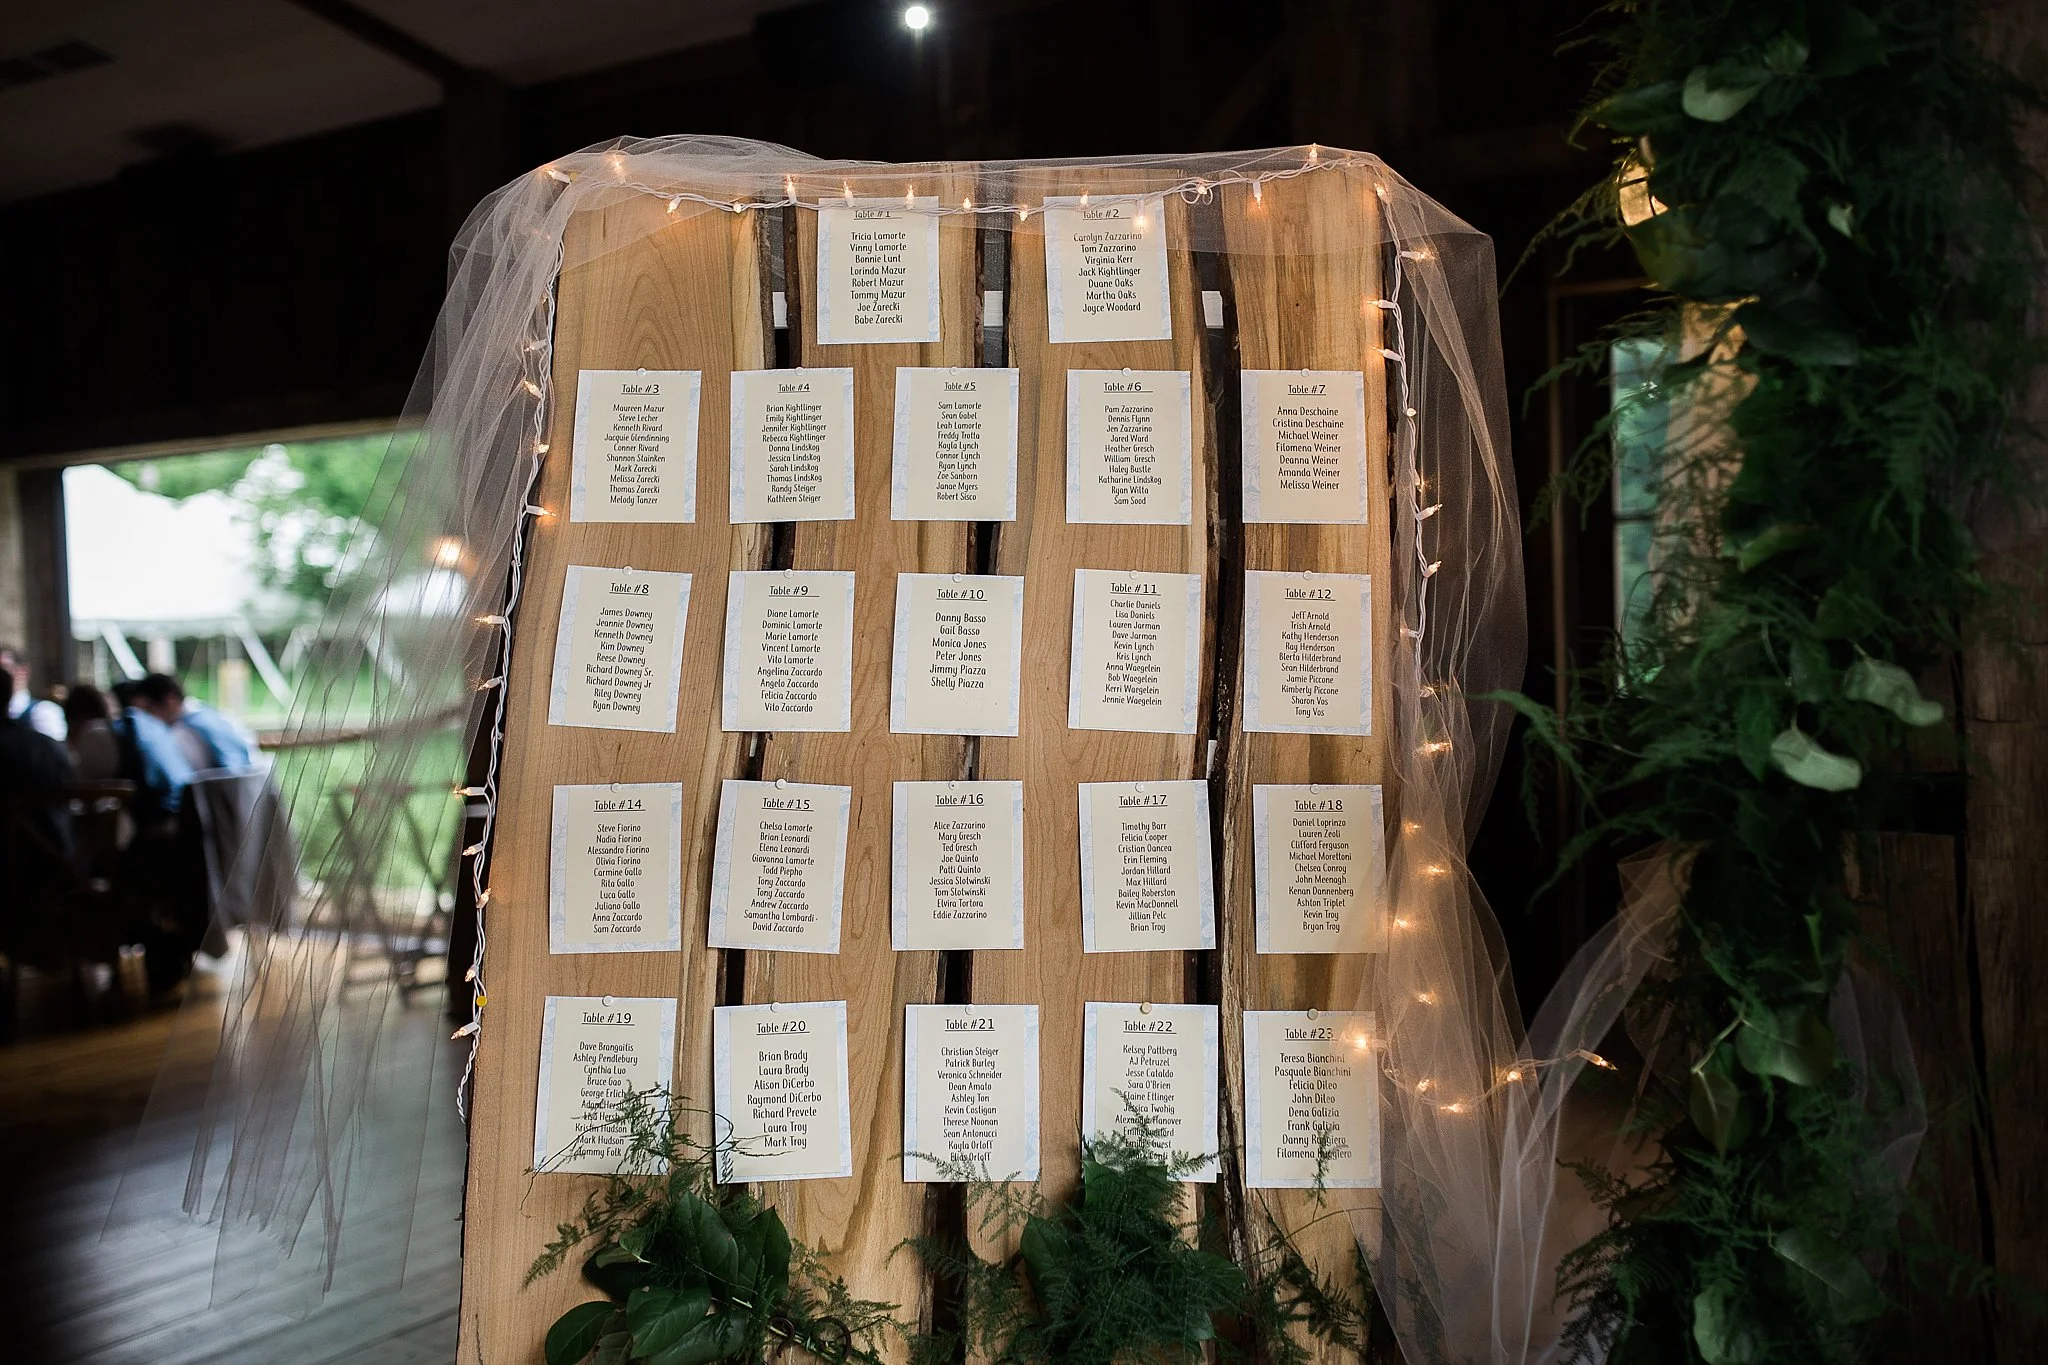 Table #1
Tricia Lamorte
Vinny Lamorte
Bonnie Lunt
Lorinda Mazur
Robert Mazur
Tommy Mazur
Joe Zarecki
Babe Zarecki
Table #2
Carolyn Zazzarino
Tom Zazzarino
Virginia Kerr
Jack Kightlinger
Duane Oaks
Martha Oaks
Joyce Woodard
Table #3
Maureen Mazur
Steve Lecher
Kenneth Rivard
Jacquie Glendinning
Conner Rivard
Shannon Stainken
Mark Zarecki
Melissa Zarecki
Thomas Zarecki
Melody Tanzer
Table #4
Brian Kightlinger
Emily Kightlinger
Jennifer Kightlinger
Rebecca Kightlinger
Donna Lindskog
Jessica Lindskog
Sarah Lindskog
Thomas Lindskog
Randy Steiger
Kathleen Steiger
Table #5
Sam Lamorte
Sean Gabel
Leah Lamorte
Freddy Trotta
Kayla Lynch
Connor Lynch
Ryan Lynch
Zoe Sanborn
Janae Myers
Robert Sisco
Table #6
Pam Zazzarino
Dennis Flynn
Jen Zazzarino
Jared Ward
Heather Gresch
William Gresch
Haley Bustle
Katharine Lindskog
Ryan Wilta
Sam Sood
Table #7
Anna Deschaine
Cristina Deschaine
Michael Weiner
Filomena Weiner
Deanna Weiner
Amanda Weiner
Melissa Weiner
Table #8
James Downey
Jeannie Downey
Kenneth Downey
Kim Downey
Reese Downey
Richard Downey Sr.
Richard Downey Jr
Riley Downey
Ryan Downey
Table #9
Diane Lamorte
Dominic Lamorte
Marie Lamorte
Vincent Lamorte
Vito Lamorte
Angelina Zaccardo
Angelo Zaccardo
Felicia Zaccardo
Vito Zaccardo
Table #10
Danny Basso
Gail Basso
Monica Jones
Peter Jones
Jimmy Piazza
Shelly Piazza
Table #11
Charlie Daniels
Lisa Daniels
Lauren Jarman
Dave Jarman
Kevin Lynch
Kris Lynch
Anna Waegelein
Bob Waegelein
Kerri Waegelein
Jennie Waegelein
Table #12
Jeff Arnold
Trish Arnold
Kathy Henderson
Ray Henderson
Blerta Hilderbrand
Sean Hilderbrand
Jamie Piccone
Kimberly Piccone
Sharon Vos
Tony Vos
Table #14
Steve Fiorino
Nadia Fiorino
Alessandro Fiorino
Olivia Fiorino
Carmine Gallo
Rita Gallo
Luca Gallo
Juliano Gallo
Anna Zaccardo
Sam Zaccardo
Table #15
Chelsa Lamorte
Brian Leonardi
Elena Leonardi
Giovanna Lamorte
Todd Piepho
Tony Zaccardo
Tony Zaccardo
Andrew Zaccardo
Samantha Lombardi-
David Zaccardo
Table #16
Alice Zazzarino
Mary Gresch
Ted Gresch
Joe Quinto
Patti Quinto
Jessica Slotwinski
Tom Slotwinski
Elvira Tortora
Eddie Zazzarino
Table #17
Timothy Barr
Felicia Cooper
Cristian Oancea
Erin Fleming
Jordan Hillard
Max Hillard
Bailey Roberston
Kevin MacDonnell
Jillian Pelc
Brian Troy
Table #18
Daniel Loprinzo
Lauren Zeoli
Clifford Ferguson
Michael Morettoni
Chelsea Conroy
John Meenagh
Kenan Dannenberg
Ashton Triplet
Kevin Troy
Bryan Troy
Table #19
Dave Brangaitis
Ashley Pendlebury
Cynthia Luo
Bruce Gao
George Erlich
Adam Hersh
Lisa Hersh
Kristin Hudson
Mark Hudson
Tammy Folk
Table #20
Brian Brady
Laura Brady
Alison DiCerbo
Raymond DiCerbo
Richard Prevete
Laura Troy
Mark Troy
Table #21
Christian Steiger
Patrick Burley
Veronica Schneider
Dean Amato
Ashley Ton
Kevin Costigan
Therese Noonan
Sean Antonucci
Kayla Orloff
Elias Orloff
Table #22
Kelsey Pattberg
AJ Petruzel
Jesse Cataldo
Sara O'Brien
Elaine Ettinger
Jessica Twohig
Alexandra Hanover
Emily
Emily's Guest
Table #23
Teresa Bianchini
Pasquale Bianchini
Felicia Dileo
John Dileo
Dena Galizia
Frank Galizia
Danny Ruggiero
Filomena Ruggiero